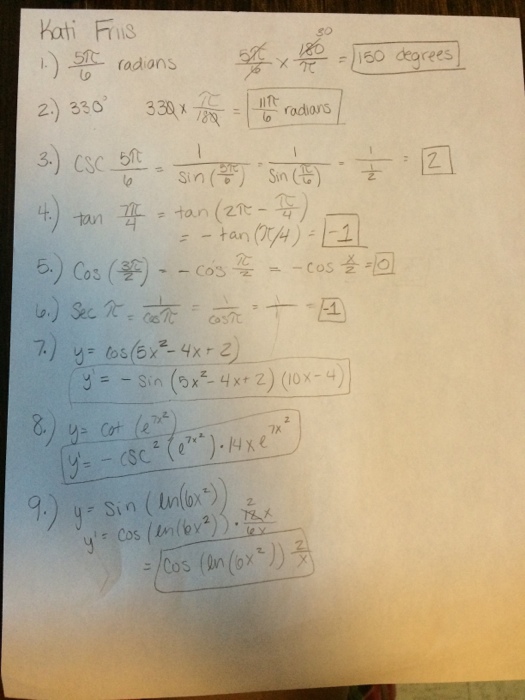 Kati Friis
1.) 5π/6 radians 5π/6 × 180/π 30 = 150 degrees
2.) 330° 330 × π/180 = 11π/6 radians
3.) csc 5π/6 = 1/sin(5π/6) = 1/sin(π/6) = 1/(1/2) = 2
4.) tan 7π/4 = tan (2π - π/4)
= - tan (π/4) = -1
5.) Cos (3π/2) = - cos π/2 = - cos x/2 = 0
6.) Sec π = 1/cos π = 1/cos π = 1/1 = -1
7.) y = cos(5x²-4x+2)
y' = - sin (5x²-4x+2) (10x-4)
8.) y = cot (e^7x²)
y' = - csc² (e^7x²) · 14xe^7x²
9.) y = sin (ln(6x²))
y' = cos (ln(6x²)) · 2 12x/6x
= cos (ln(6x²)) 2/x